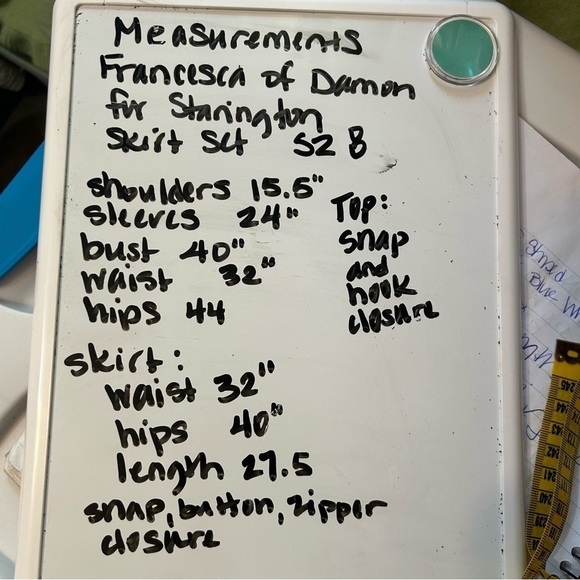 Measurements
Francesca of Damon
for Starington
Skirt Set SZ 8
shoulders 15.5"
sleeves 24"
bust 40"
waist 32"
hips 44
Top:
snap
and
hook
closure
skirt:
waist 32"
hips 40"
length 27.5
snap, button, zipper
closure
Blue
245
242
241
240
239